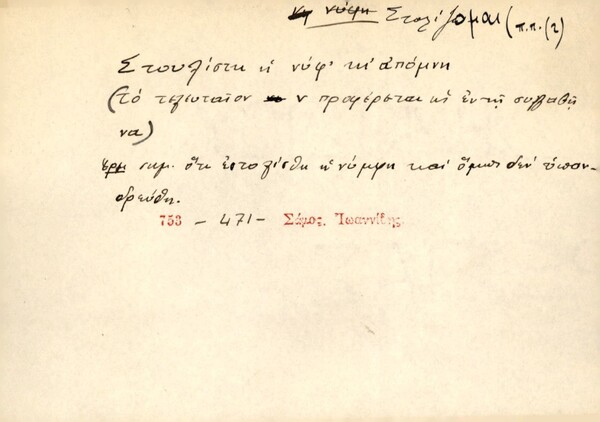 νύφη Στολίζομαι (π.π. (2)
Στουλίστκι ἡ νύφ' κι ἀπόμνη
(τό τελευταῖον ν προφέρεται ὡς ἐν τῇ συλλαβῇ
να)
σημ. ὅτι ἐστολίσθη ἡ νύμφη καί ὅμως δέν ὑπαν-
δρεύθη.
753 - 471 - Σάμος. Ἰωαννίδης.